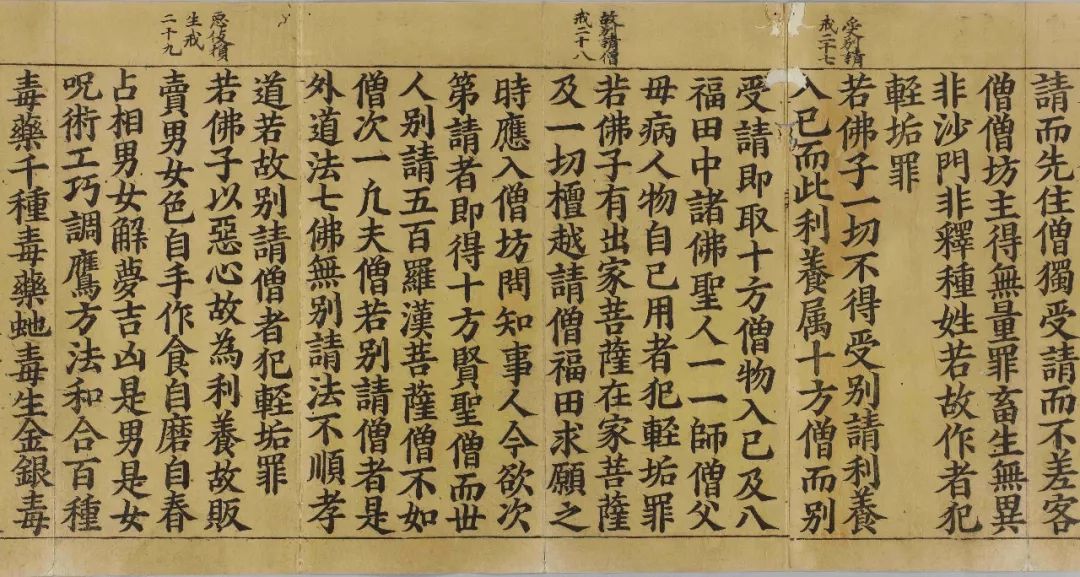 請而先住僧獨受請而不差客
僧僧坊主得無量罪畜生無異
非沙門非釋種姓若故作者犯
輕垢罪
受别請
戒二十七
若佛子一切不得受别請利養
入已而此利養属十方僧而别
受請即取十方僧物入已及八
福田中諸佛聖人一一師僧父
母病人物自已用者犯輕垢罪
故别請僧
戒二十八
若佛子有出家菩薩在家菩薩
及一切檀越請僧福田求願之
時應入僧坊問知事人今欲次
第請者即得十方賢聖僧而世
人别請五百羅漢菩薩僧不如
僧次一凢夫僧若别請僧者是
外道法七佛無别請法不順孝
道若故别請僧者犯輕垢罪
惡伎損
生戒
二十九
若佛子以惡心故為利養故販
賣男女色自手作食自磨自舂
占相男女解夢吉凶是男是女
呪術工巧調鷹方法和合百種
毒藥千種毒藥虵毒生金銀毒